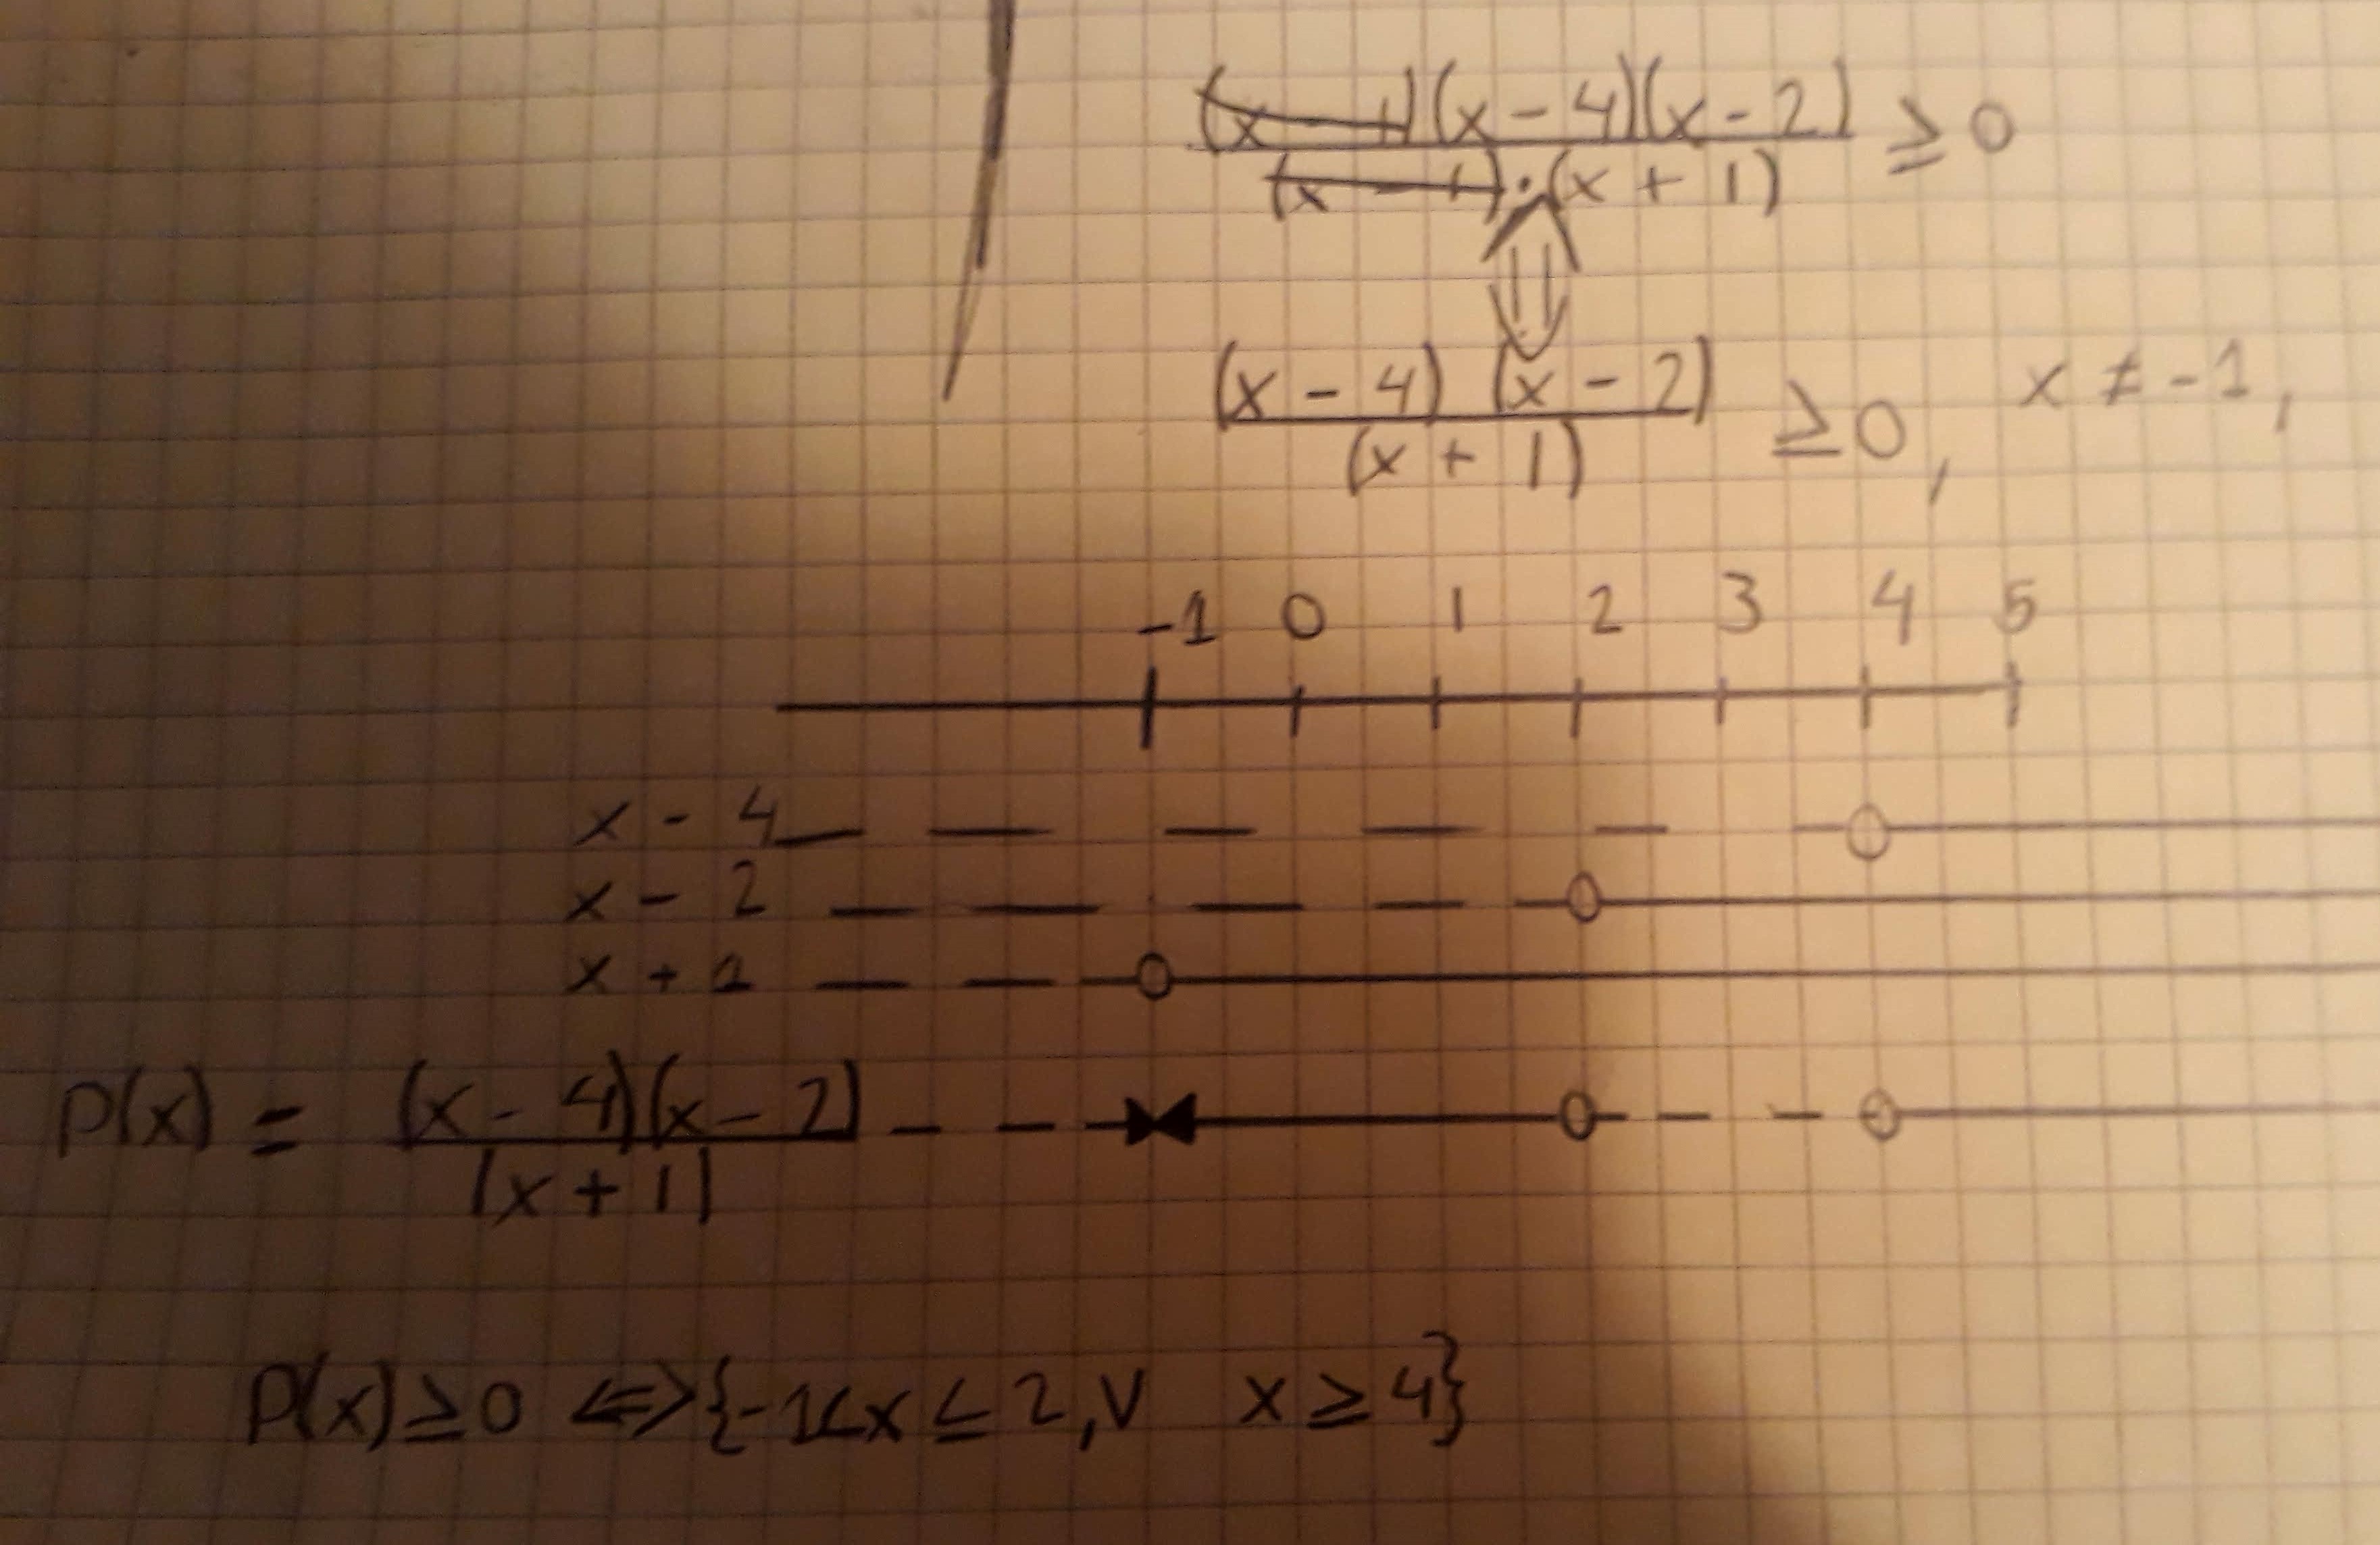 (x - 1)(x - 4)(x - 2) ≥ 0
(x - 1) · (x + 1)
⇕
(x - 4) (x - 2) ≥ 0, x ≠ -1,
(x + 1)
-1 0 1 2 3 4 5
x - 4
x - 2
x + 1
P(x) = (x - 4)(x - 2)
(x + 1)
P(x) ≥ 0 ⇔ {-1 < x ≤ 2, V x ≥ 4}